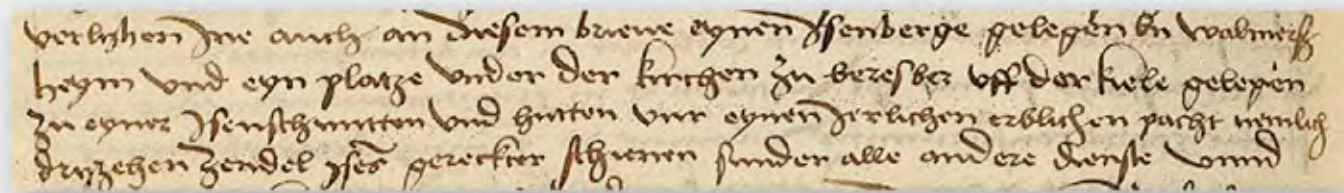 verlyhen Ine auch an diesem brieue eynen Isenberge gelegen by walmerß
heym vnd eyn platze vnder der kirchen zu beresber vff der kiele gelegen
zu eyner Isenschmitten vnd hutten vur eynen Jerlichen erblichen pacht nemlich
dryzehen zendel Isens gereckter schienen sunder alle andere dienste vnnd